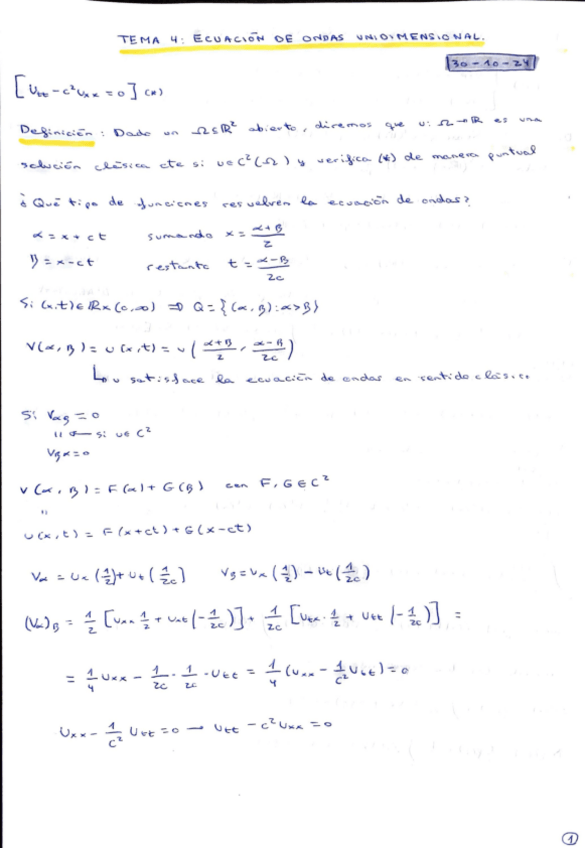 TEMA 4: ECUACIÓN DE ONDAS UNIDIMENSIONAL.
30-10-24
[u_tt - c²u_xx = 0] (*)
Definición: Dado un Ω⊆ℝ² abierto, diremos que u: Ω→ℝ es una
solución clásica cte si u∈C²(Ω) y verifica (*) de manera puntual
¿Qué tipo de funciones resuelven la ecuación de ondas?
α = x + ct sumando x = (α+β)/2
β = x - ct restante t = (α-β)/2c
Si (x,t)∈ℝx(0,∞) ⇒ Q = {(α,β): α>β}
V(α,β) = u(x,t) = u((α+β)/2, (α-β)/2c)
↳ u satisface la ecuación de ondas en sentido clásico
Si V_αβ = 0
" ← si u∈C²
V_βα = 0
V(α,β) = F(α) + G(β) con F, G∈C²
"
u(x,t) = F(x+ct) + G(x-ct)
V_α = u_x(1/2) + u_t(1/2c) V_β = u_x(1/2) - u_t(1/2c)
(V_α)_β = 1/2 [u_xx 1/2 + u_xt(-1/2c)] + 1/2c [u_tx · 1/2 + u_tt(-1/2c)] =
= 1/4 u_xx - 1/2c · 1/2c · u_tt = 1/4 (u_xx - 1/c² u_tt) = 0
u_xx - 1/c² u_tt = 0 → u_tt - c²u_xx = 0
1